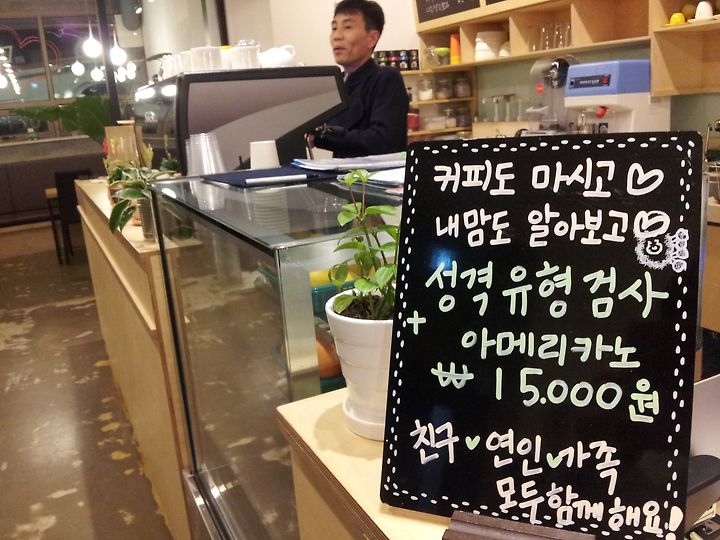 커피도 마시고
내맘도 알아보고
성격유형검사
+ 아메리카노
₩ 15.000원
친구♥연인♥가족
모두함께해요!